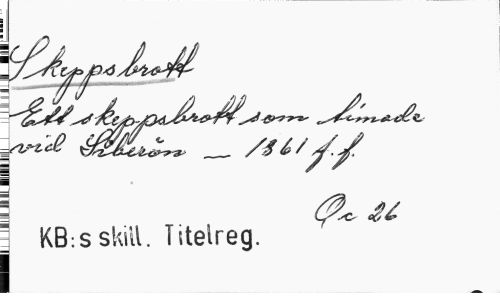 Skeppsbrott
Ett skeppsbrott som timade
vid Siberön — 1861 f.f.
Qc 26
KB:s skill. Titelreg.